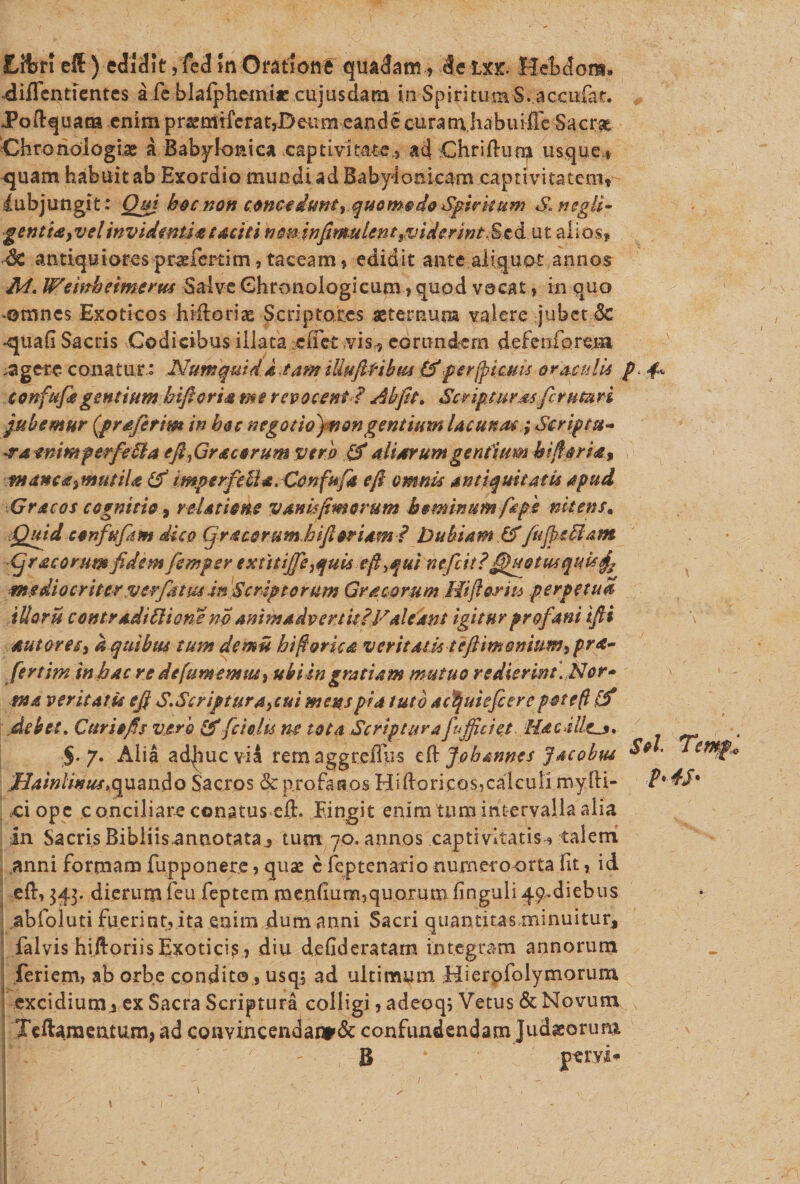 Libri eſt) edidit, ſed in Oratione quadam, de LXX. Hebdom.
diſſentientes à ſe blaſphemiæ cujusdam in Spiritum S. accuſat.
Poſtquam enim præmiſerat, Deum eandē curam habuiſſe Sacræ
Chronologiæ à Babylonica captivitate, ad Chriſtum usque,
quam habuit ab Exordio mundi ad Babylonicam captivitatem,
ſubjungit: Qui hoc non concedunt, quomodo Spiritum S. negli-
gentiæ, vel invidentiæ taciti non inſimulent, viderint. Sed ut alios,
& antiquiores præſertim, taceam, edidit ante aliquot annos
M. Weinheimerus Salve Chronologicum, quod vocat, in quo
omnes Exoticos hiſtoriæ Scriptores æternum valere jubet &
quaſi Sacris Codicibus illata eſſet vis, eorundem defenſorem
agere conatur: Numquid à tam illuſtribus & perſpicuis oraculis p. 4.
confuſæ gentium hiſtoriæ me revocent? Abſit. Scripturas ſcrutari
jubemur (præſertim in hoc negotio) non gentium lacunas; Scriptu-
ra enim perfecta eſt, Græcorum vero & aliarum gentium hiſtoria,
manca, mutila & imperfecta. Confuſa eſt omnis antiquitatis apud
Græcos cognitio, relatione vaniſſimorum hominum ſæpè nitens.
Quid confuſam dico Græcorum hiſtoriam? Dubiam & ſuſpectam
Græcorum fidem ſemper extitiſſe, quis eſt, qui neſcit? Quotusquisq;
mediocriter verſatus in Scriptorum Græcorum Hiſtoriis perpetuā
illorū contradictionē nō animadvertit? Valeant igitur profani iſti
autores, à quibus tum demū hiſtorica veritatis teſtimonium, præ-
ſertim in hac re deſumemus, ubi in gratiam mutuo redierint. Nor-
ma veritatis eſt S. Scriptura, cui mens pia tutò acquieſcere poteſt &
debet. Curioſis vero & ſciolis ne tota Scriptura ſufficiet. Hæc ille.
§. 7. Aliâ adhuc viâ rem aggreſſus eſt Johannes Jacobus Sol. Temp.
Hainlinus, quando Sacros & profanos Hiſtoricos, calculi myſti- p. 45.
ci ope conciliare conatus eſt. Fingit enim tum intervalla alia
in Sacris Bibliis annotata, tum 70. annos captivitatis, talem
anni formam ſupponere, quæ è ſeptenario numero orta ſit, id
eſt, 343. dierum ſeu ſeptem menſium, quorum ſinguli 49. diebus
abſoluti fuerint, ita enim dum anni Sacri quantitas minuitur,
ſalvis hiſtoriis Exoticis, diu deſideratam integram annorum
ſeriem, ab orbe condito, usq; ad ultimum Hieroſolymorum
excidium, ex Sacra Scripturâ colligi, adeoq; Vetus & Novum
Teſtamentum, ad convincendam & confundendam Judæorum
B pervi-